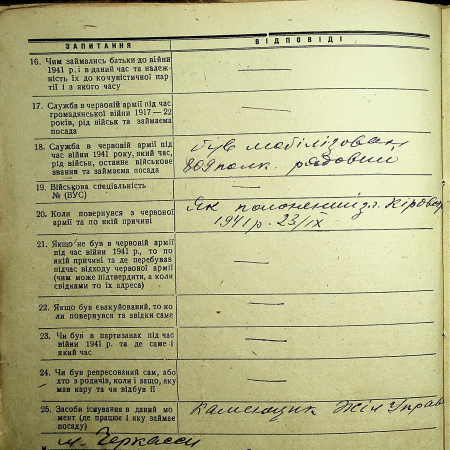 ЗАПИТАННЯ
ВІДПОВІДІ
16. Чим займались батьки до війни
1941 р. і в даний час та належ-
ність їх до комуністичної пар-
тії і з якого часу
—
17. Служба в червоній армії під час
громадянської війни 1917—22
років, рід військ та займаєма
посада
—
18. Служба в червоній армії під
час війни 1941 року, який час,
рід військ, останне військове
звання та займаєма посада
був мобілізован
полк. рядовий
19. Військова спеціальність
№ (ВУС)
—
20. Коли повернувся з червоної
армії та по якій причині
Як полонений
1941 р. 23/IX
21. Якщо не був в червоній армії
під час війни 1941 р., то по
якій причині та де перебував
підчас відходу червоної армії
(чим може підтвердити, а коли
свідками то їх адреса)
—
22. Якщо був евакуйований, то ко
ли повернувся та звідки саме
—
23. Чи був в партизанах під час
війни 1941 р. та де саме і
який час
—
24. Чи був репресований сам, або
хто з родичів, коли і защо, яку
мав кару та чи відбув її
—
25. Засоби існування в даний мо
мент (де працює і яку займає
посаду)
каменщик Жіл Управ
м. Черкасси